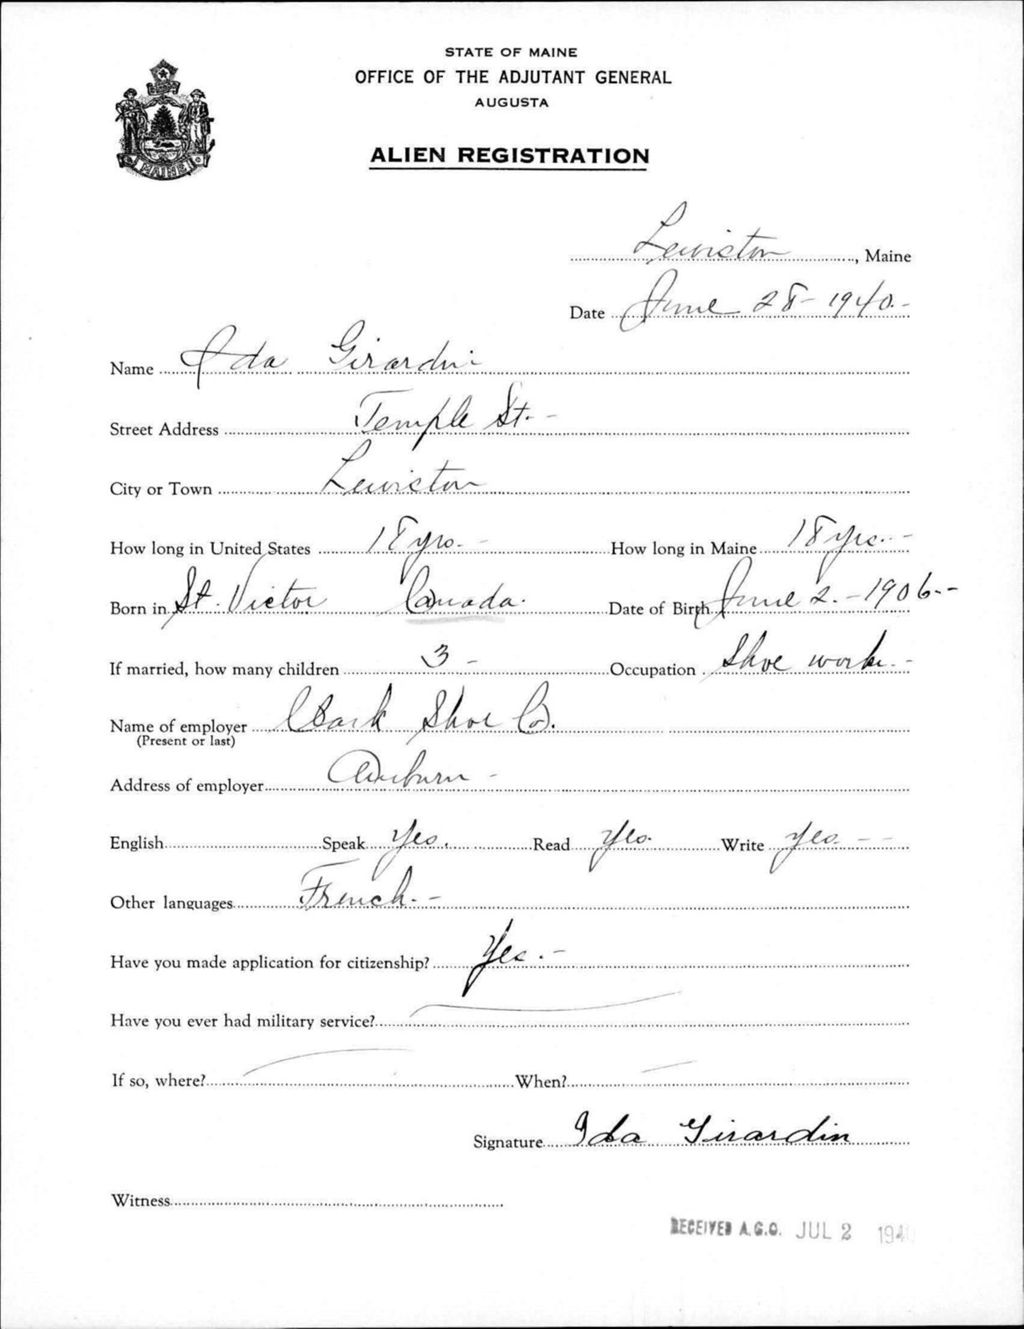 STATE OF MAINE
OFFICE OF THE ADJUTANT GENERAL
AUGUSTA
ALIEN REGISTRATION
MAINE
Lewiston, Maine
Date June 28 - 1940. -
Name Ida Girardin
Street Address Temple St. -
City or Town Lewiston
How long in United States 18 yrs. - How long in Maine 18 yrs. -
Born in St. Victor Canada. Date of Birth June 2. - 1906. -
If married, how many children 3 - Occupation Shoe worker. -
Name of employer Clark Shoe Co.
(Present or last)
Address of employer Auburn -
English Speak Yes. Read Yes. Write Yes. - -
Other languages French. -
Have you made application for citizenship? Yes. -
Have you ever had military service?
If so, where? When?
Signature Ida Girardin
Witness
RECEIVED A.G.O. JUL 2 1940